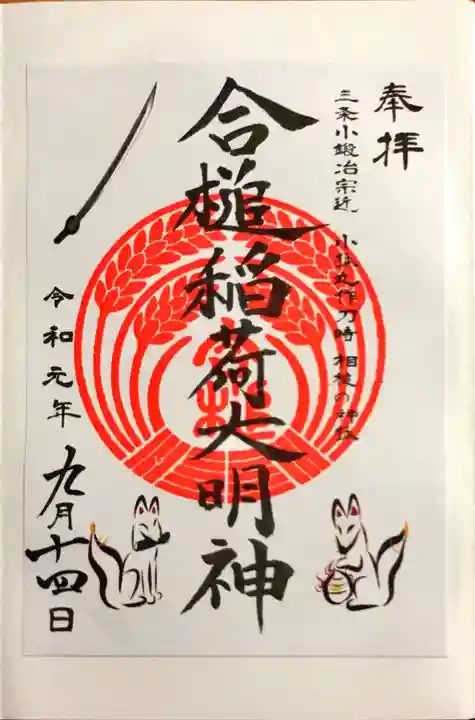 奉拝
三条小鍛冶宗近 小狐丸作刀時 相槌の神故
合槌稲荷大明神
令和元年
九月十四日